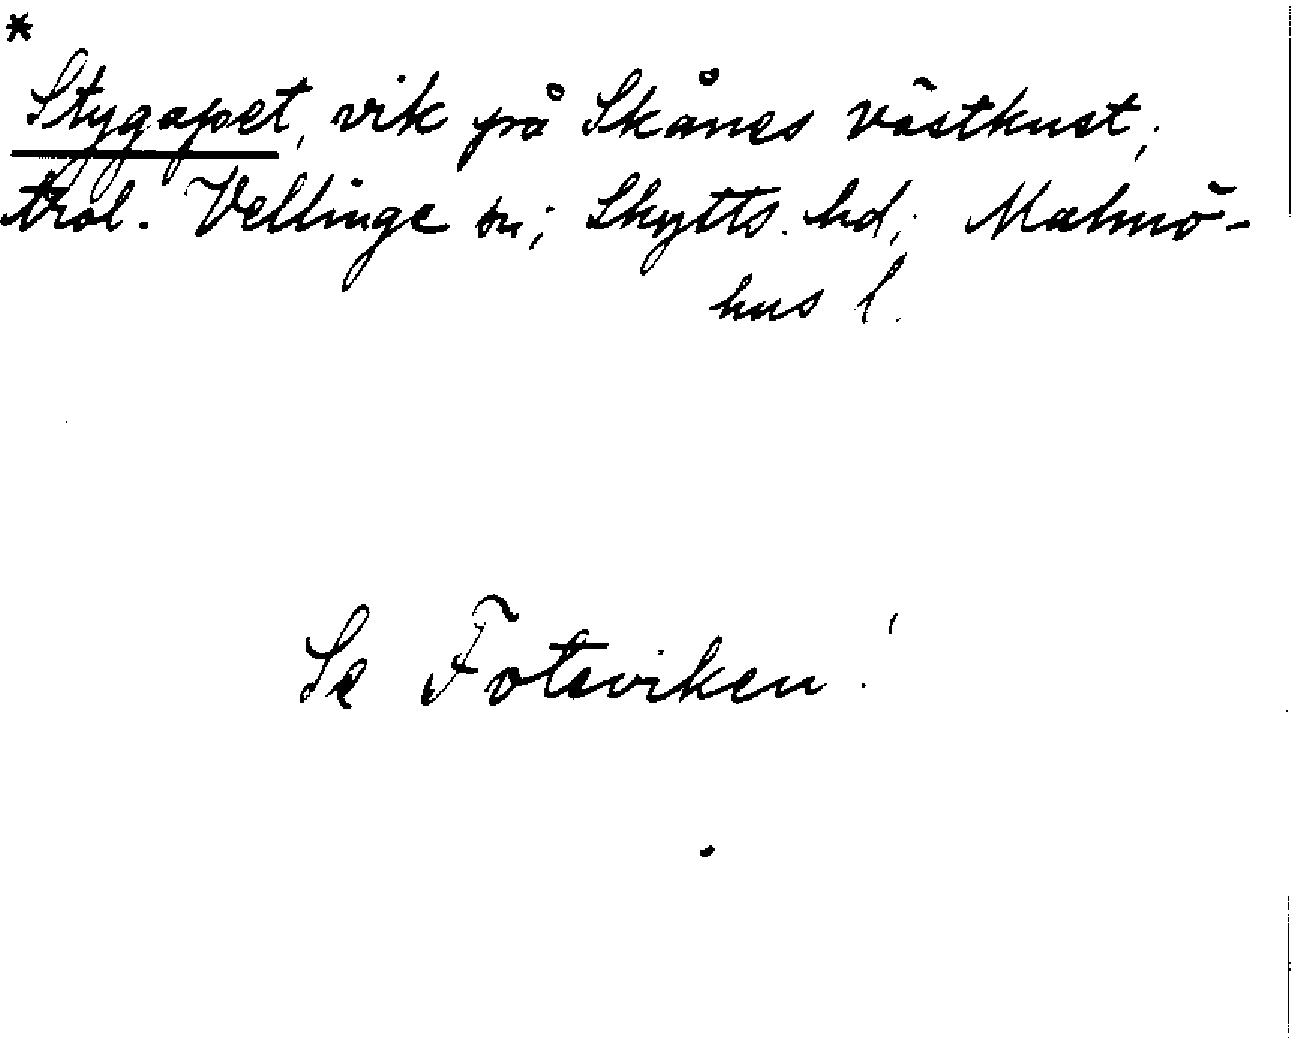 *
Stygapet, vik på Skånes västkust;
trol. Vellinge sn; Skytts hd; Malmö-
hus l.
Se Foteviken!